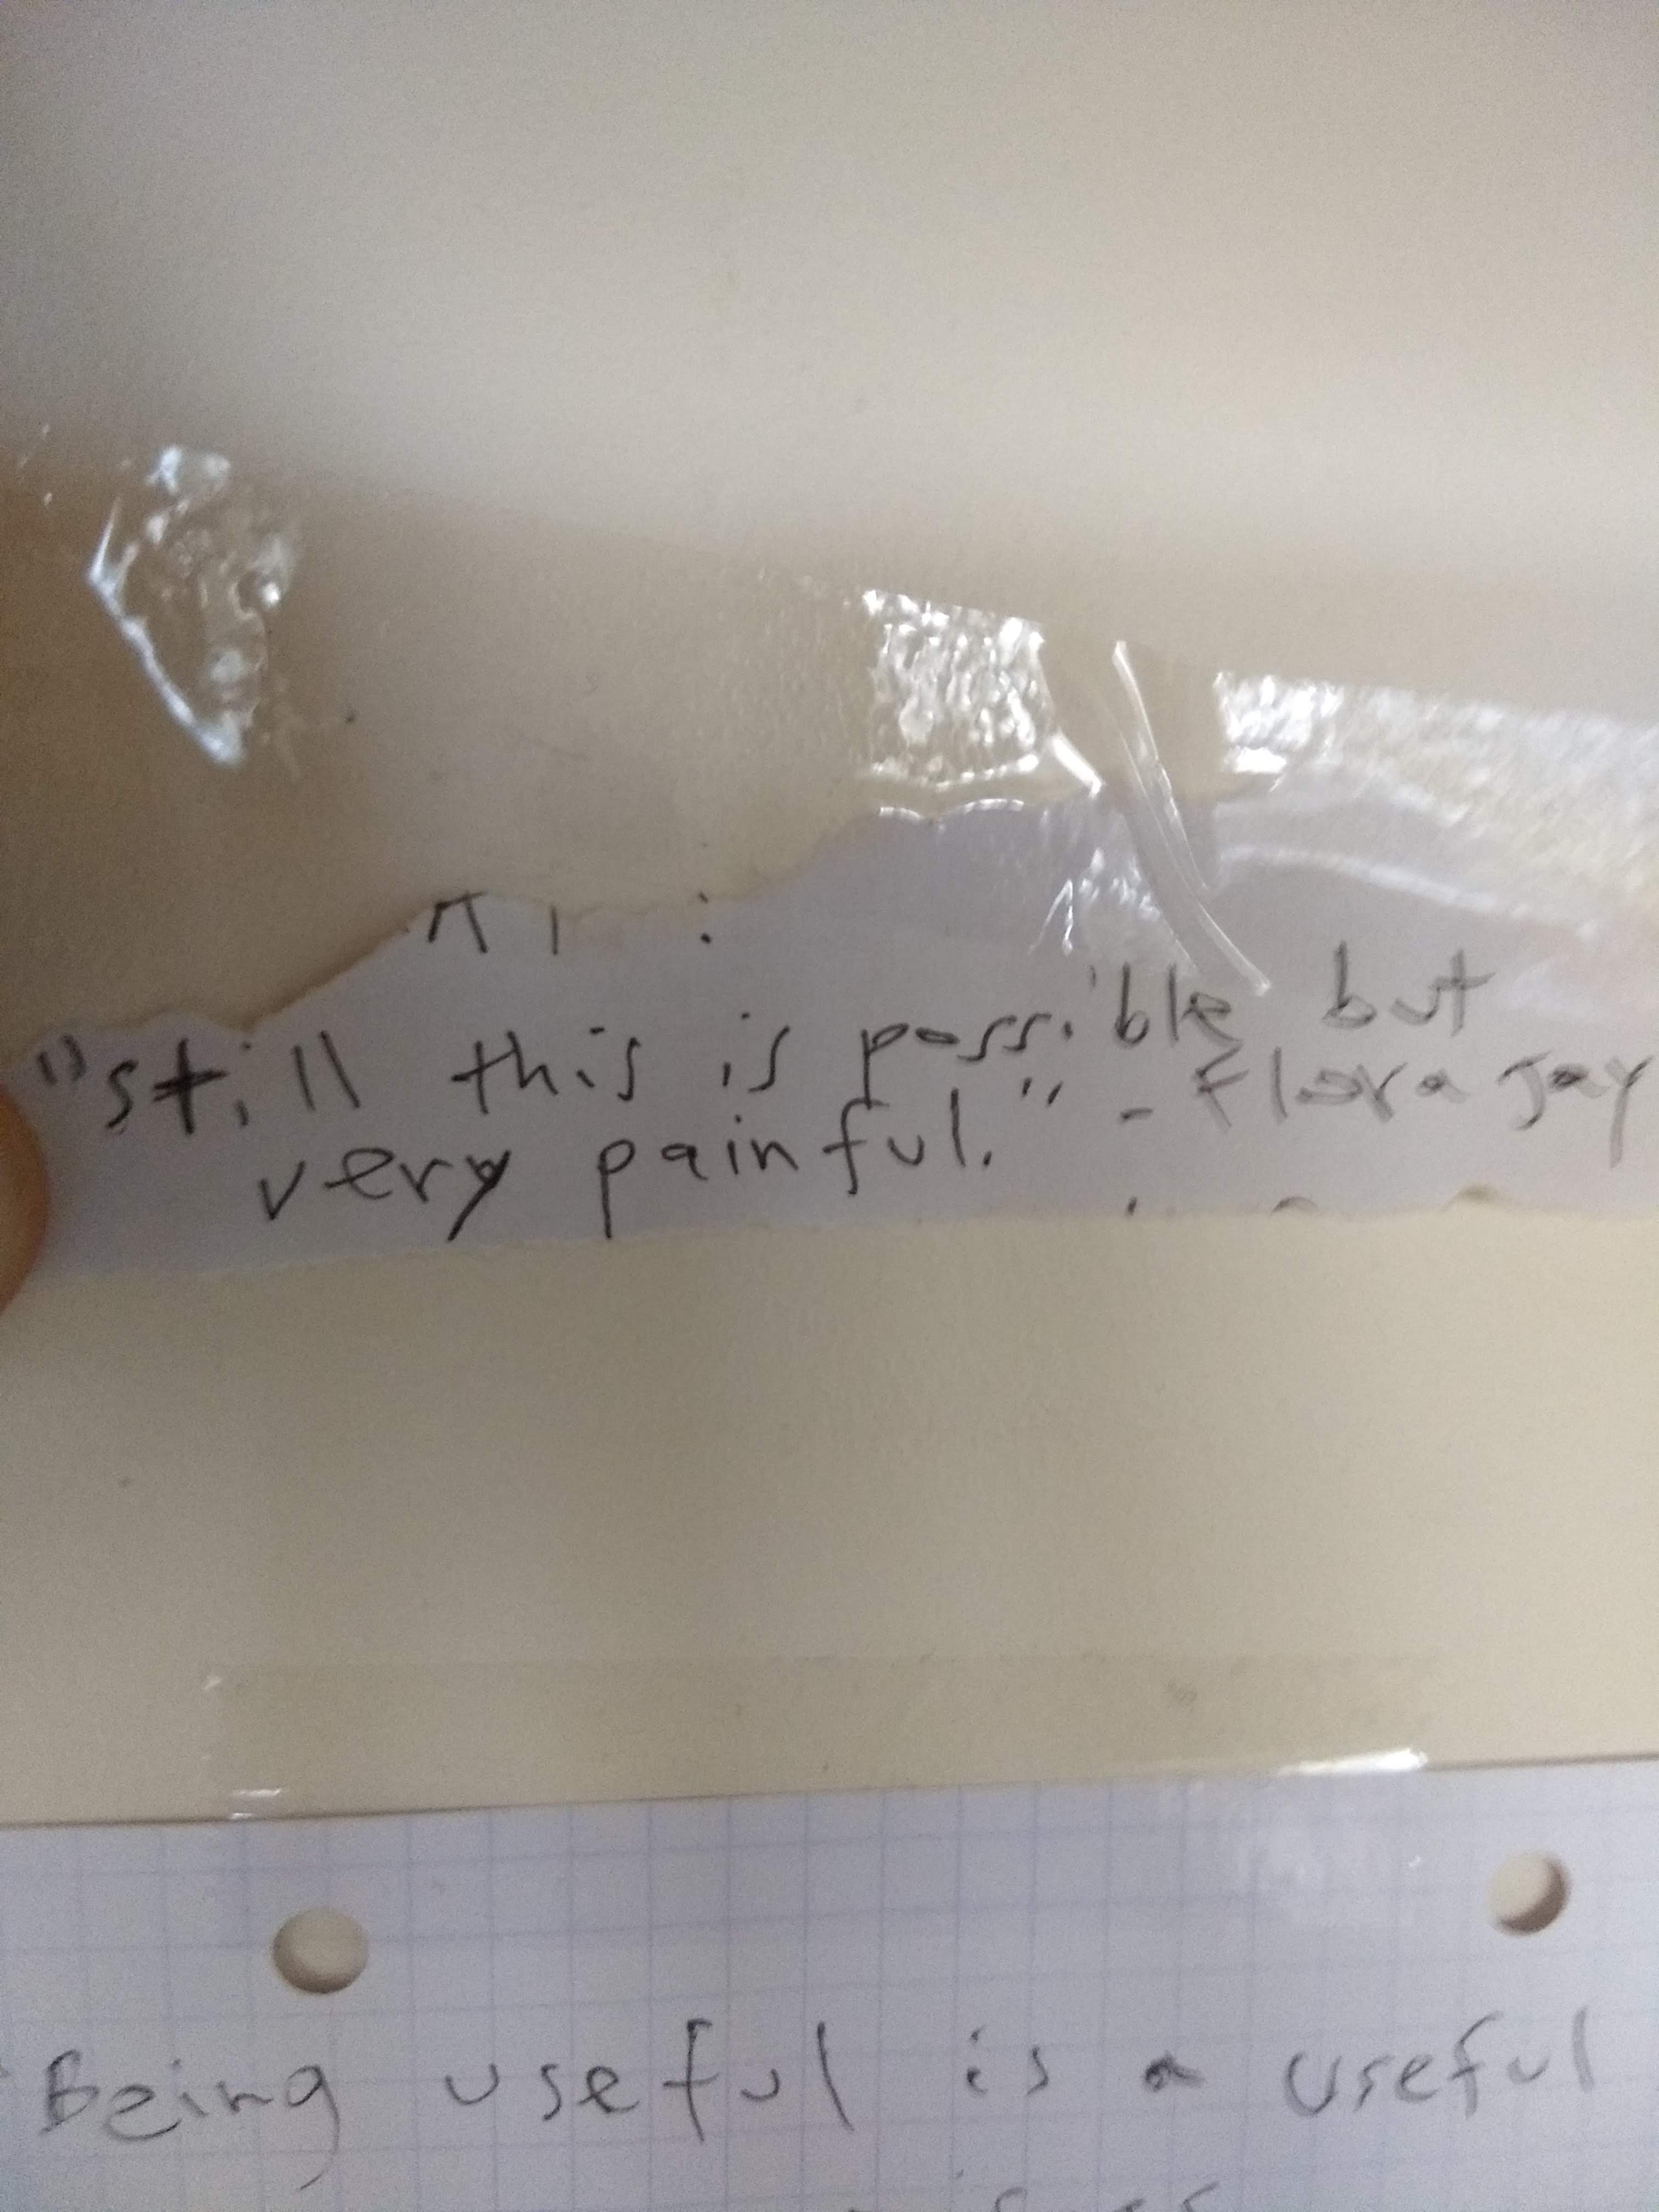 "still this is possible but
very painful." - Flora Jay
Being useful is a useful